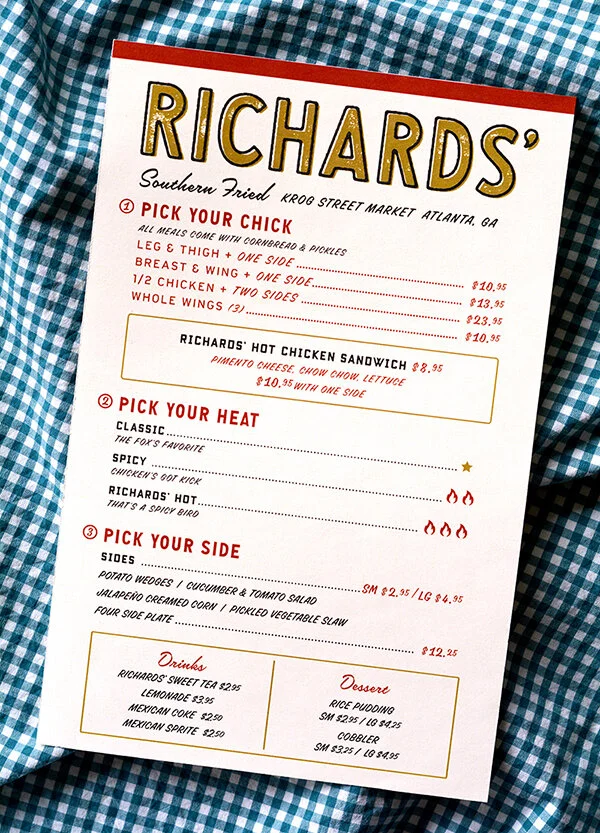 RICHARDS'
Southern Fried KROG STREET MARKET ATLANTA, GA
1 PICK YOUR CHICK
ALL MEALS COME WITH CORNBREAD & PICKLES
LEG & THIGH + ONE SIDE $10.95
BREAST & WING + ONE SIDE $13.95
1/2 CHICKEN + TWO SIDES $23.95
WHOLE WINGS (3) $10.95
RICHARDS' HOT CHICKEN SANDWICH $8.95
PIMENTO CHEESE, CHOW CHOW, LETTUCE
$10.95 WITH ONE SIDE
2 PICK YOUR HEAT
CLASSIC
THE FOX'S FAVORITE
SPICY
CHICKEN'S GOT KICK
RICHARDS' HOT
THAT'S A SPICY BIRD
3 PICK YOUR SIDE
SIDES SM $2.95 / LG $4.95
POTATO WEDGES / CUCUMBER & TOMATO SALAD
JALAPEÑO CREAMED CORN / PICKLED VEGETABLE SLAW
FOUR SIDE PLATE $12.25
Drinks
RICHARDS' SWEET TEA $2.95
LEMONADE $3.95
MEXICAN COKE $2.50
MEXICAN SPRITE $2.50
Dessert
RICE PUDDING
SM $2.95 / LG $4.25
COBBLER
SM $3.25 / LG $4.95